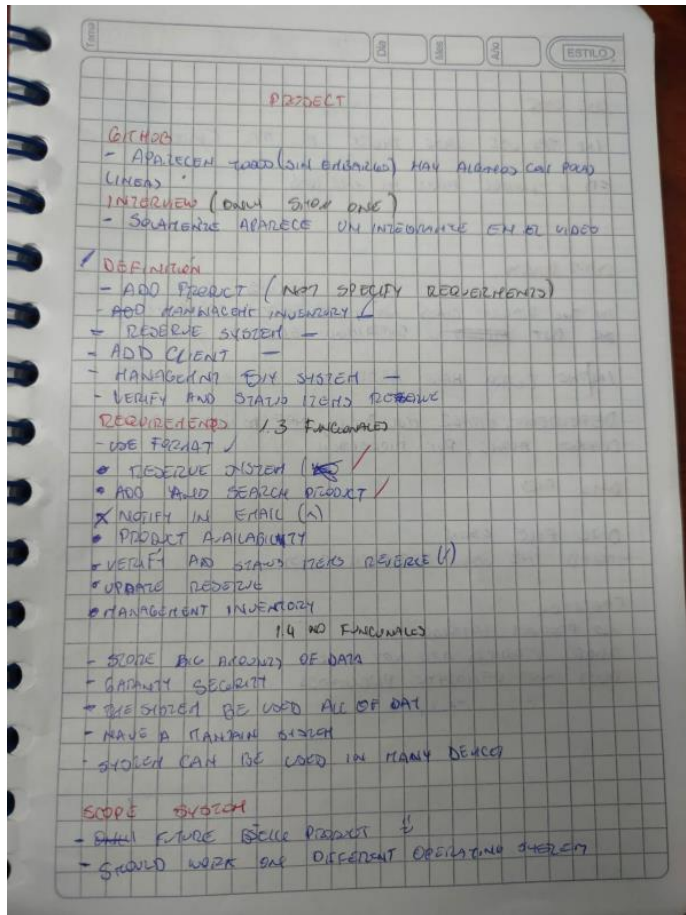 Tema Día Mes Año ESTILO
PROJECT
GITHUB
- APARECEN TODOS (SIN EMBARGO) HAY ALGUNOS CON POCAS
LINEAS
INTERVIEW (ONLY SHOW ONE)
- SOLAMENTE APARECE UN INTEGRANTE EN EL VIDEO
DEFINITION
- ADD PRODUCT (NOT SPECIFY REQUERIMENTS)
- ADD MANNAGEME INVENTORY
- RESERVE SYSTEM -
- ADD CLIENT -
- MANAGEMENT SYSTEM -
- VERIFY AND STATUS ITEMS RESERVE
REQUIREMENTS 1.3 FUNCIONALES
- USE FORMAT ✓
• RESERVE SYSTEM
• ADD AND SEARCH PRODUCT
X NOTIFY IN EMAIL
• PRODUCT AVAILABILITY
- VERIFY AND STATUS ITEMS RESERVE
• UPDATE RESERVE
• MANAGEMENT INVENTORY
1.4 NO FUNCIONALES
- STORE BIG AMOUNTS OF DATA
- GARANTY SECURITY
- THE SYSTEM BE USED ALL OF DAY
- HAVE A MANTAIN SYSTEM
- SYSTEM CAN BE USED IN MANY DEVICES
SCOPE SYSTEM
- FUTURE PRODUCT
- SHOULD WORK ONE DIFFERENT OPERATING SYSTEM